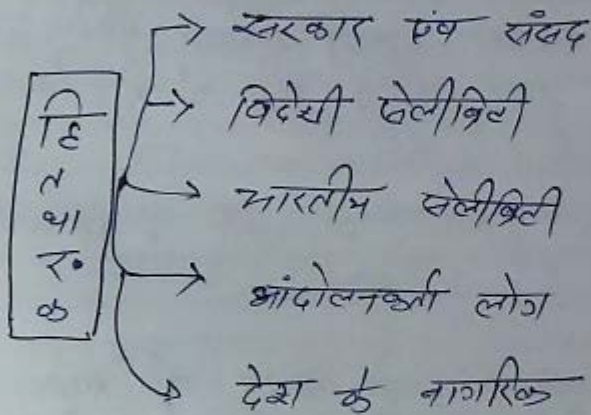 हितधारक
सरकार एंव संसद
विदेशी सेलीब्रिटी
भारतीय सेलीब्रिटी
आंदोलनकर्ता लोग
देश के नागरिक